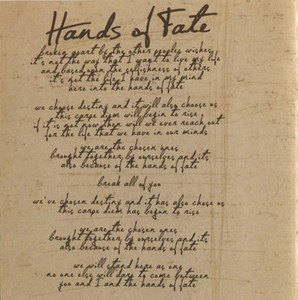 Hands of Fate
broken apart by the other peoples wishes
it's not the way that I want to live my life
and based upon the selfishness of others
it's not the life I have in my mind
here into the hands of fate
we choose destiny and it will also choose us
this carpe diem will begin to rise
if it is not now then will we ever reach out
for the life that we have in our minds
we are the chosen ones
brought together by ourselves and its
also because of the hands of fate
break all of you
we've chosen destiny and it has also chose us
this carpe diem has begun to rise
we are the chosen ones
brought together by ourselves and its
also because of the hands of fate
we will stand here as one
no one else will dare to come between
you and I and the hands of fate